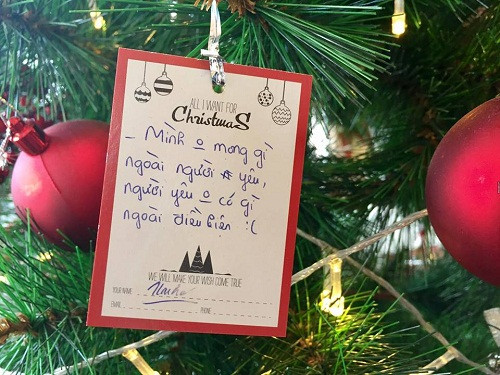 ALL I WANT FOR
Christmas
- Mình o mong gì
ngoài người yêu,
người yêu o có gì
ngoài điều kiện :(
WE WILL MAKE YOUR WISH COME TRUE
YOUR NAME
EMAIL PHONE